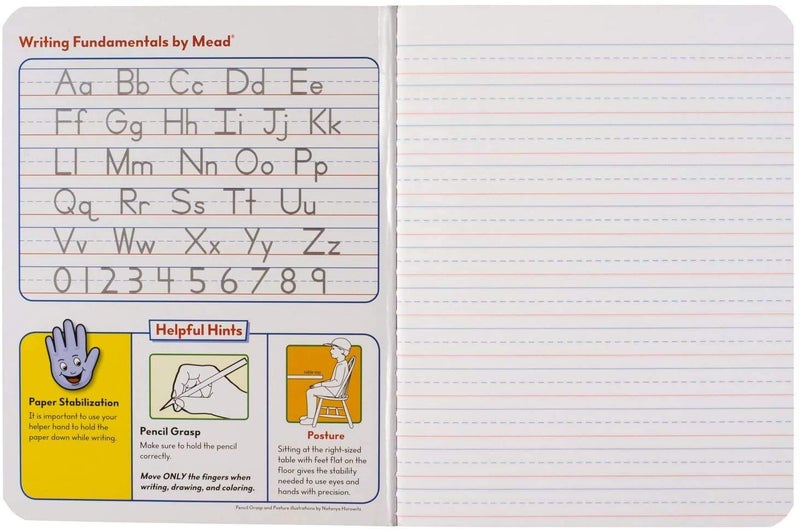 Writing Fundamentals by Mead®
Aa Bb Cc Dd Ee
Ff Gg Hh Ii Jj Kk
Ll Mm Nn Oo Pp
Qq Rr Ss Tt Uu
Vv Ww Xx Yy Zz
0 1 2 3 4 5 6 7 8 9
Helpful Hints
Paper Stabilization
It is important to use your
helper hand to hold the
paper down while writing.
Pencil Grasp
Make sure to hold the pencil
correctly.
Move ONLY the fingers when
writing, drawing, and coloring.
table top
Posture
Sitting at the right-sized
table with feet flat on the
floor gives the stability
needed to use eyes and
hands with precision.
Pencil Grasp and Posture illustrations by Natanya Horowitz.